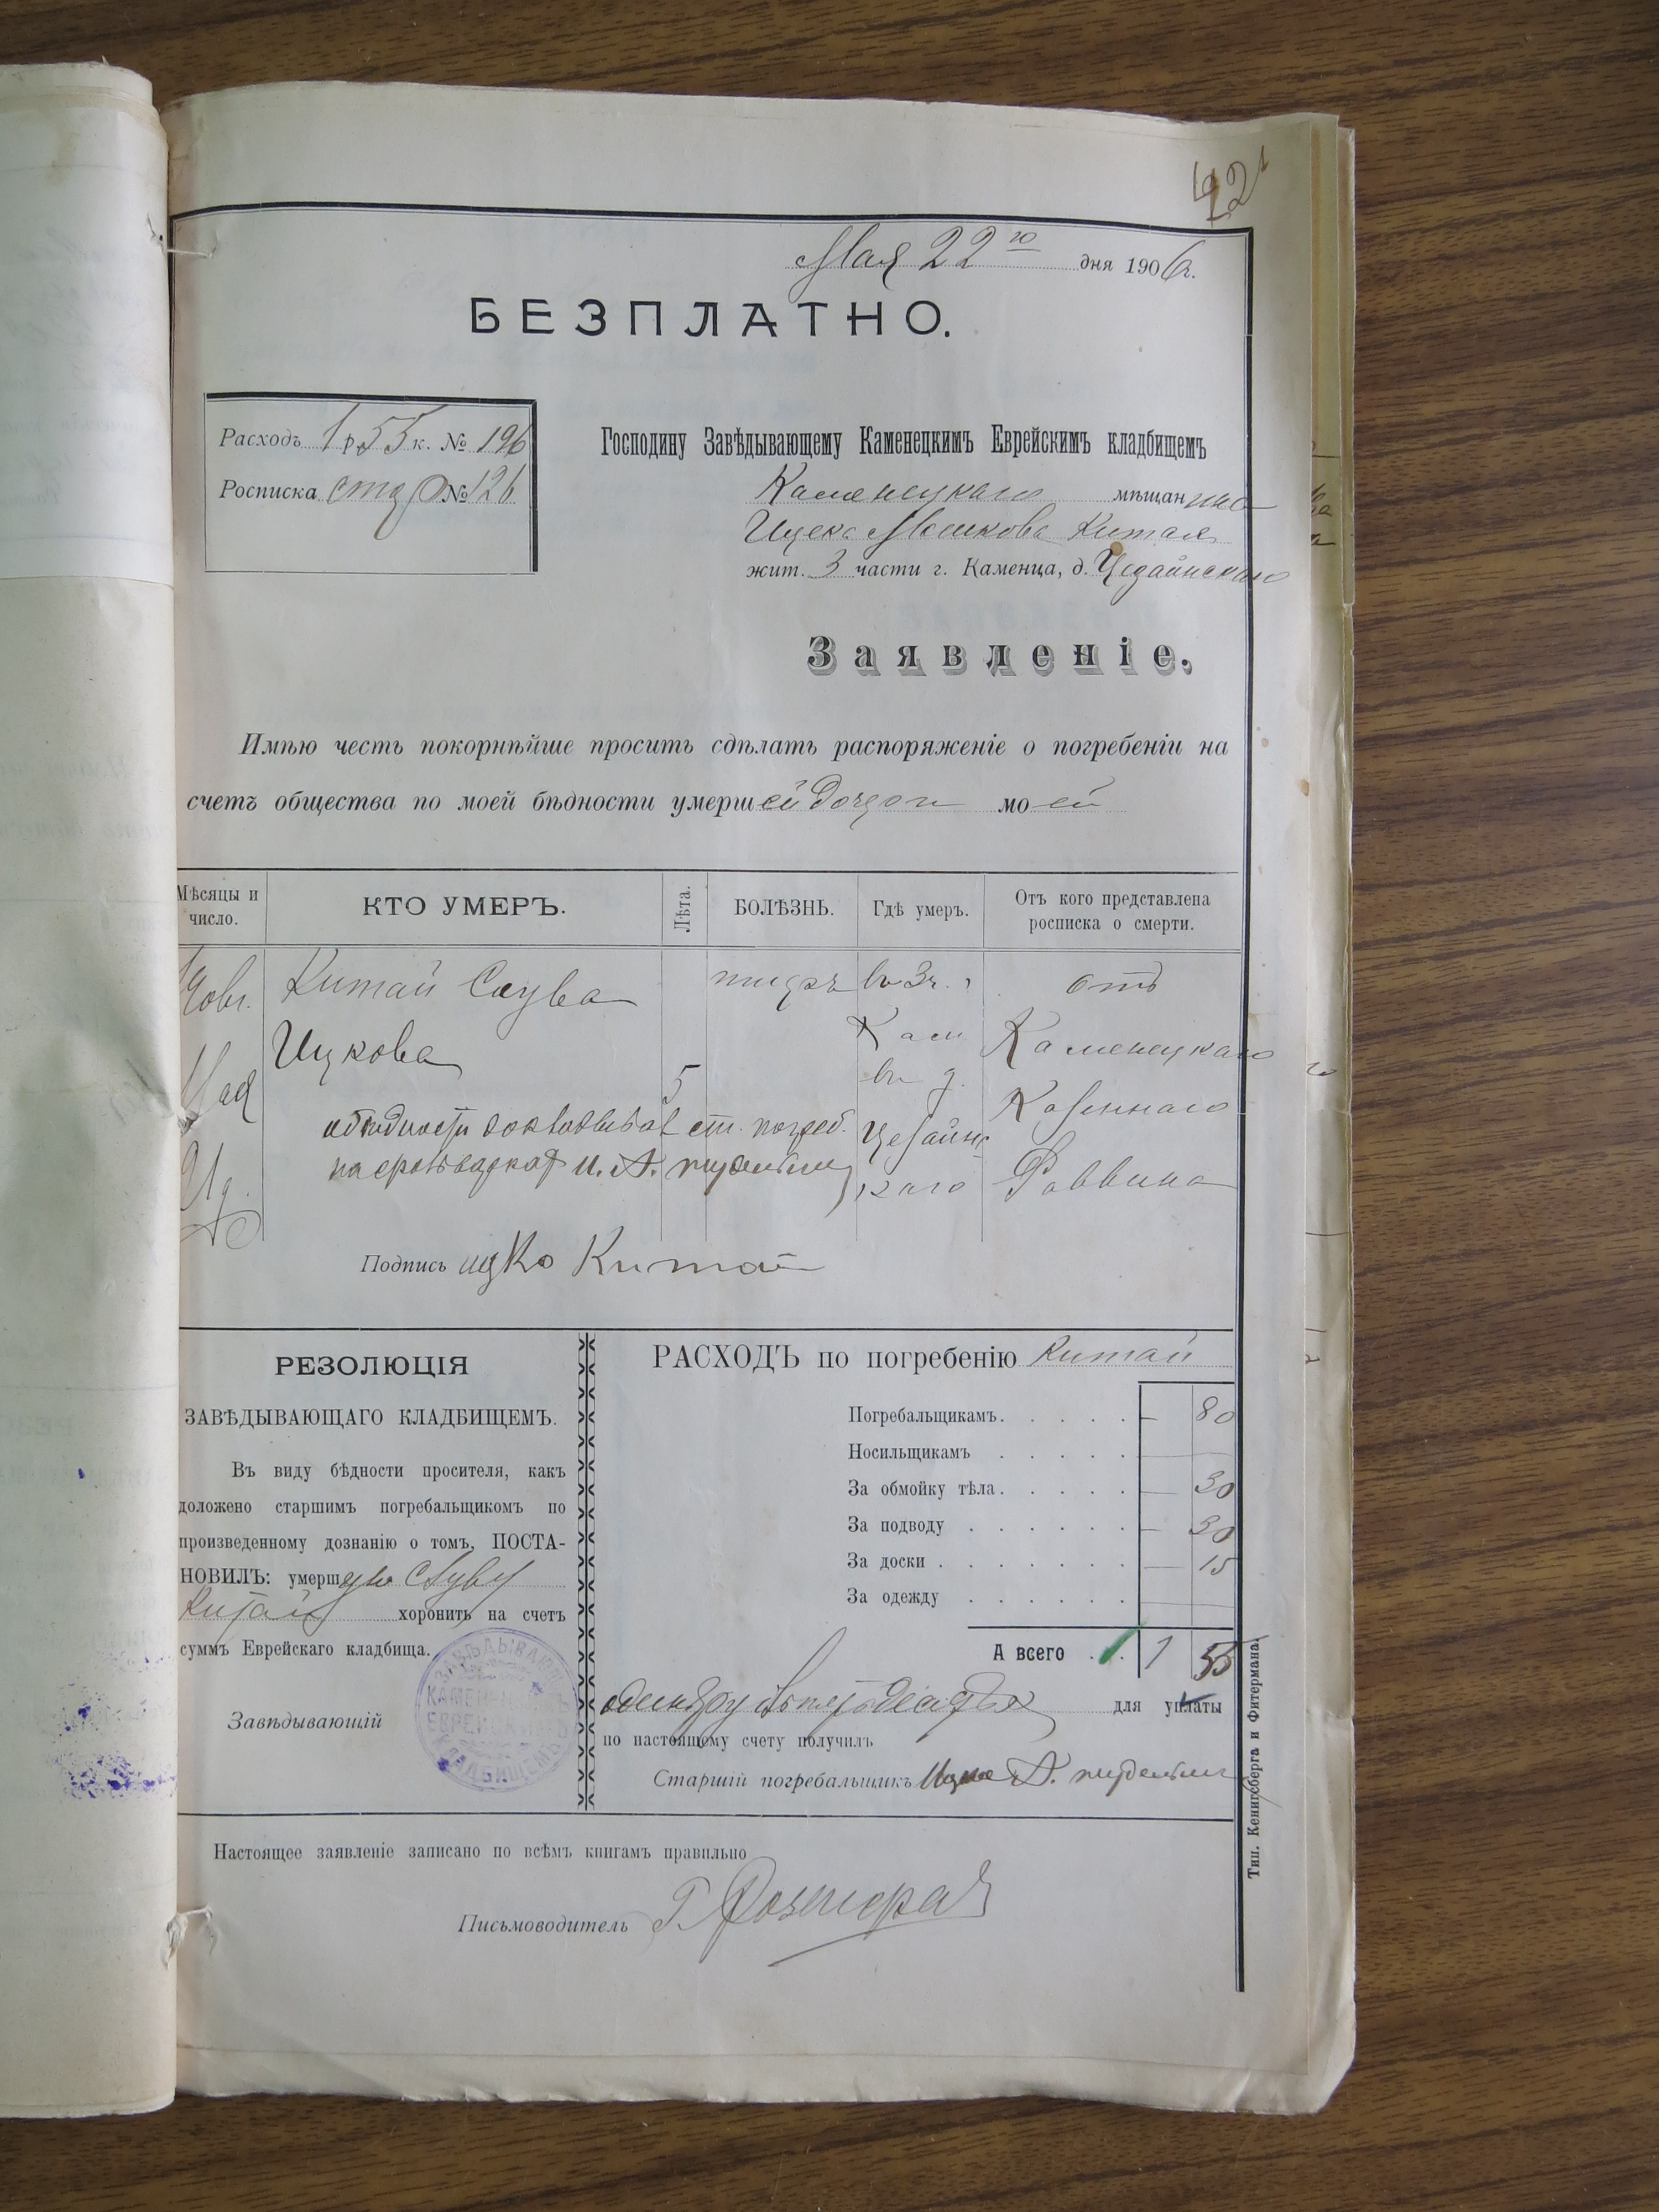 42
Мая 22го дня 1906 г.
БЕЗПЛАТНО.
Расходъ 1 р. 55 к. № 196
Росписка № 126
Господину Завѣдывающему Каменецкимъ Еврейскимъ кладбищемъ
Каменецкаго мѣщанина
Ицека Мошкова Китая
жит. 3 части г. Каменца, д.
Заявленіе.
Имѣю честь покорнѣйше просить сдѣлать распоряженіе о погребеніи на
счетъ общества по моей бѣдности умершей дочери моей
Мѣсяцы и число.
КТО УМЕРЪ.
Лѣта.
БОЛѢЗНЬ.
Гдѣ умеръ.
Отъ кого представлена росписка о смерти.
Китай
Ицкова
Мая
5
въ 3 ч.
Кам
въ д.
отъ
Каменецкаго
Казеннаго
Раввина
Подпись ицко Китай
РЕЗОЛЮЦІЯ
ЗАВѢДЫВАЮЩАГО КЛАДБИЩЕМЪ.
Въ виду бѣдности просителя, какъ
доложено старшимъ погребальщикомъ по
произведенному дознанію о томъ, ПОСТА-
НОВИЛЪ: умершую
Китай хоронить на счетъ
суммъ Еврейскаго кладбища.
Завѣдывающій
РАСХОДЪ по погребенію Китай
Погребальщикамъ. . . . . . — 80
Носильщикамъ . . . . . —
За обмойку тѣла. . . . . . — 30
За подводу . . . . . . — 30
За доски . . . . . . . — 15
За одежду . . . . . .
А всего . . 1 55
для уплаты
по настоящему счету получилъ
Старшій погребальщикъ
Настоящее заявленіе записано по всѣмъ книгамъ правильно
Письмоводитель
Тип. Кенигсберга и Фитермана.